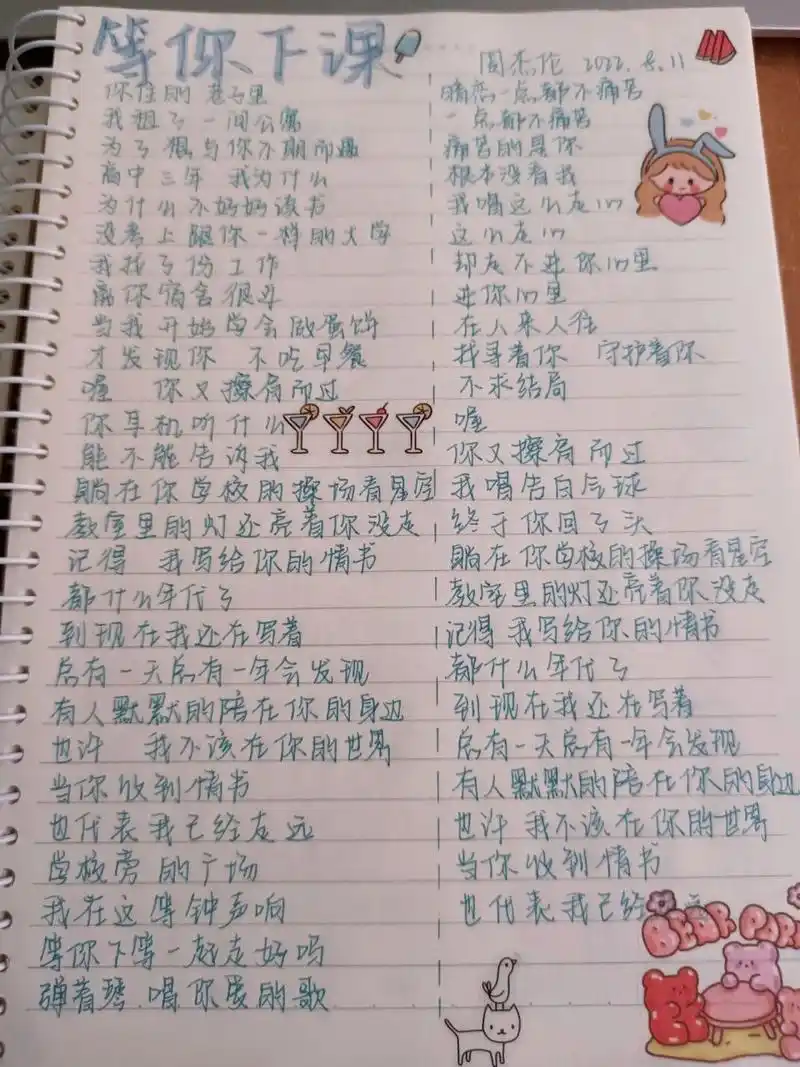 等你下课
周杰伦 2022.8.11
你住的 巷子里
我租了一间公寓
为了想与你不期而遇
高中三年 我为什么
为什么不好好读书
没考上跟你一样的大学
我找了份工作
离你宿舍很近
当我开始学会做蛋饼
才发现你 不吃早餐
喔 你又擦肩而过
你耳机听什么
能不能告诉我
躺在你学校的操场看星空
教室里的灯还亮着你没走
记得 我写给你的情书
都什么年代了
到现在我还在写着
总有一天总有一年会发现
有人默默的陪在你的身边
也许 我不该在你的世界
当你收到情书
也代表我已经走远
学校旁的广场
我在这等钟声响
等你下等一起走好吗
弹着琴 唱你爱的歌
暗恋一点都不痛苦
一点都不痛苦
痛苦的是你
根本没看我
我唱这么走心
这么走心
却走不进你心里
进你心里
在人来人往
找寻着你 守护着你
不求结局
喔
你又擦肩而过
我唱告白气球
终于你回了头
躺在你学校的操场看星空
教室里的灯还亮着你没走
记得 我写给你的情书
都什么年代了
到现在我还在写着
总有一天总有一年会发现
有人默默的陪在你的身边
也许 我不该在你的世界
当你收到情书
也代表我已经
BEAR